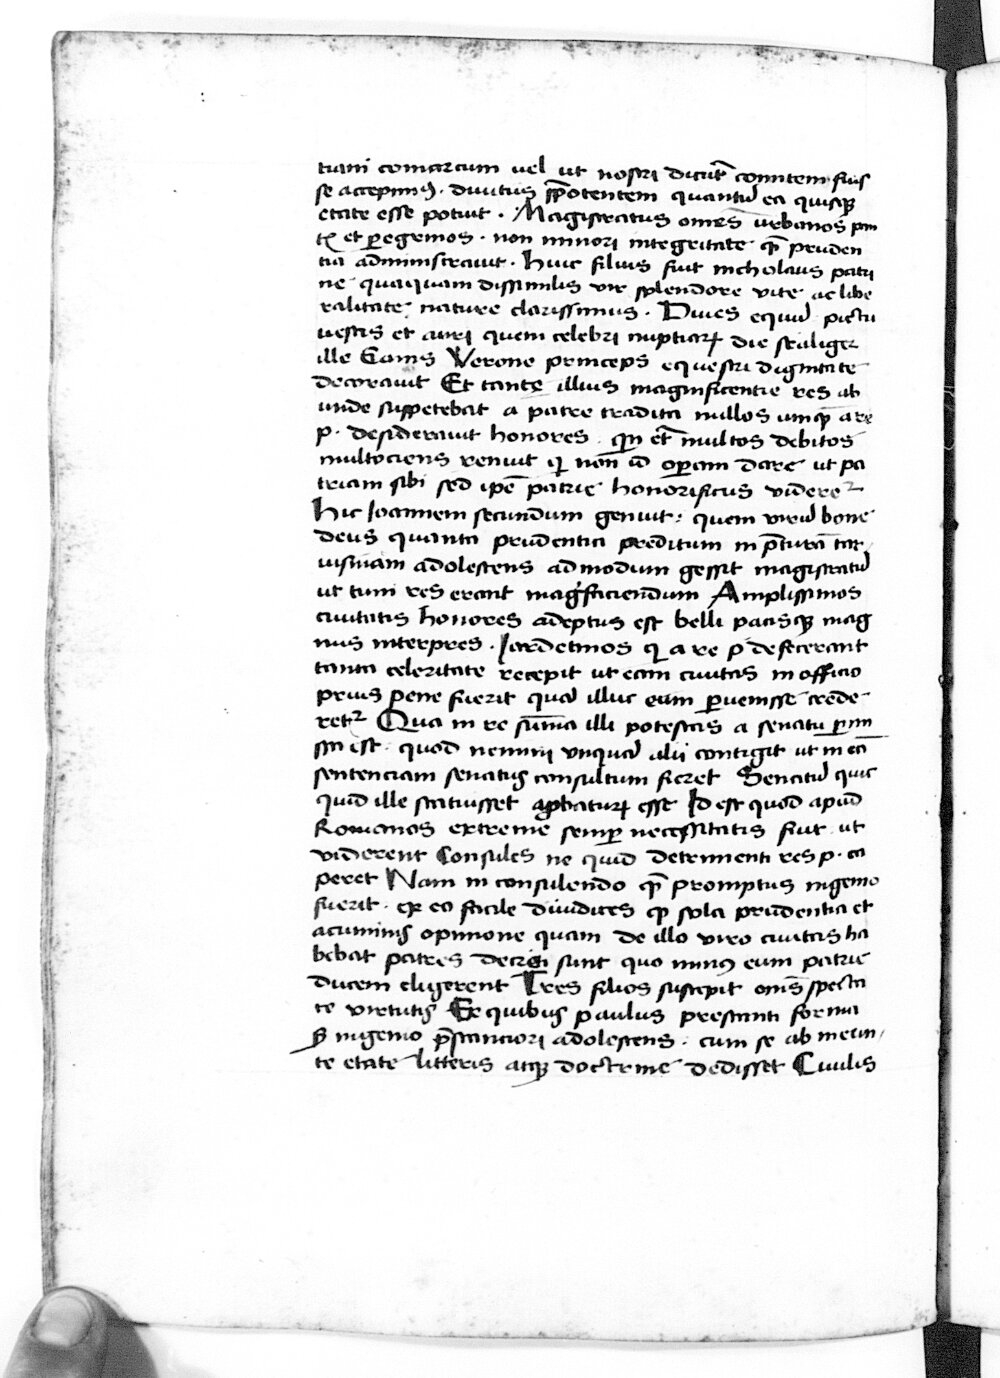 tiani comarcum uel ut nostri dicut̄ comitem fuis
se accepim9. diuitiis p̄potentem quantū ea quisq
etate esse potuit. Magistratus om̄es urbanos pari
t̄ et p̲egrinos. non minori integritate q̄ pruden
tia administrauit. Huic filius fuit nicholaus patri
ne quaquam dissimilis vir splendore vite ac libe
ralitate nature clarissimus. Diues equū pictu
uestis et auri quem celebri nuptiaꝝ die scaliger
ille Canis Verone princeps equestri dignitate
decorauit Et tante illius magnificentie res ab
unde suppetebat a patre tradita nullos unq̄ a re
p. desiderauit honores. qn̄ et̄ multos debitos
multociens renuit qi non id op̲am dare ut pa
triam sibi sed ip̄e patrie honorificus videret᷑
Hic Joannem secundum genuit: quem virū bone
deus quanta prudentia preditum in p̄tura tar
uisinam adolescens admodum gessit magistratū
ut tum res erant mag̓faciendum Amplissimos
ciuitatis honores adeptus est belli pacisq mag
nus interpres. Jardetinos qi a re p defecerant
tanta celeritate recepit ut eam ciuitas in officio
prius pene fuerit quā illuc eum p̲uenisse crede
ret᷑ Qua in re sum̄a illi potestas a senatu p̲mi
ssa est. quod nemini vnquā alii contigit ut in eā
sentenciam senatus consultum fieret Sencitū quic
quid ille statuisset ap̲baturꝝ esse Id est quod apud
Romanos extreme semp̲ necessitatis fuit ut
viderent Consules ne quid detrimenti res p. ca
peret Nam in consulendo q̄ promptus ingenio
fuerit. ex eo facile diiudices q̄ sola prudentia et
acuminis opinione quam de illo viro ciuitas ha
bebat patres decreti sunt quo min9 eum patrie
ducem eligerent Tres filios suscepit om̄s specta
te virtutis Ex quibus paulus prestanti forma
sʒ ingenio p̄stanciori adolescens. cum se ab ineun
te etate litteris atq doctrine dedisset Ciuilis